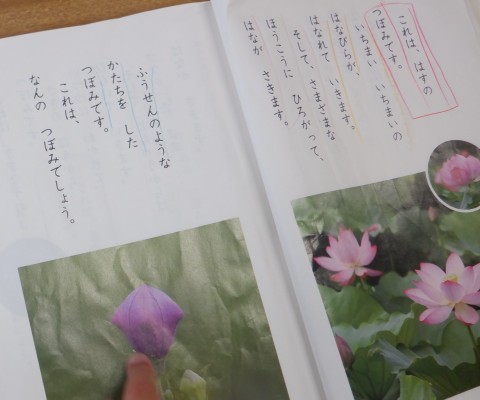 これは、はすの
つぼみです。
いちまい　いちまいの
はなびらが、
はなれて　いきます。
そして、さまざまな
ほうこうに　ひろがって、
はなが　さきます。
ふうせんのような
かたちを　した
つぼみです。
これは、
なんの　つぼみでしょう。